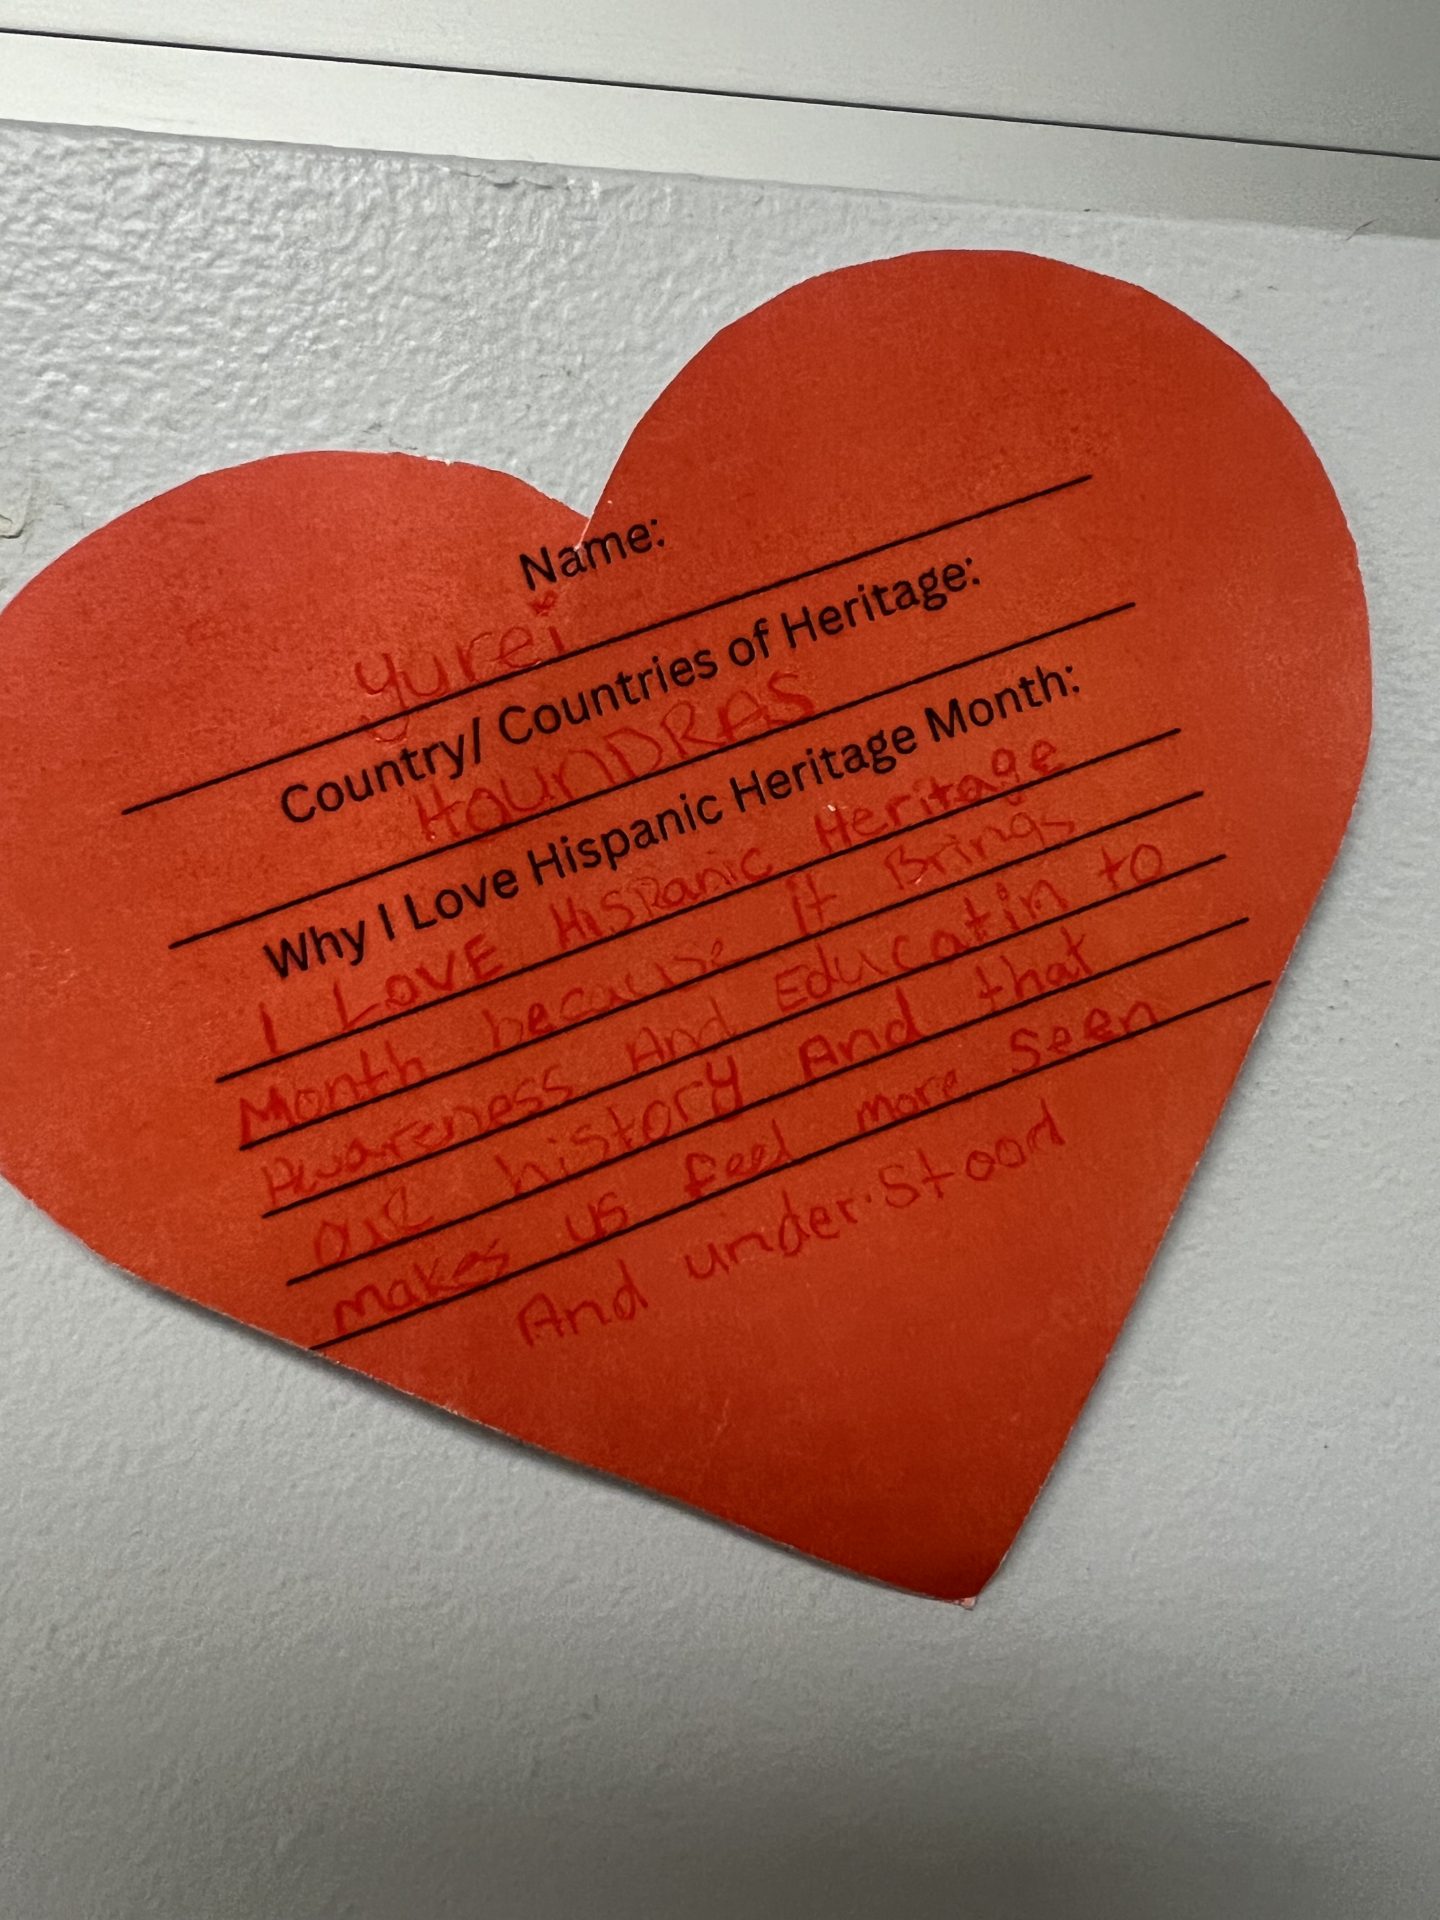 Name:
yurei
Country/ Countries of Heritage:
HOUNDRAS
Why I Love Hispanic Heritage Month:
I LOVE HISPanic Heritage
Month because it Brings
Awareness And Educatin to
our history And that
makes us feel more seen
And under.stood